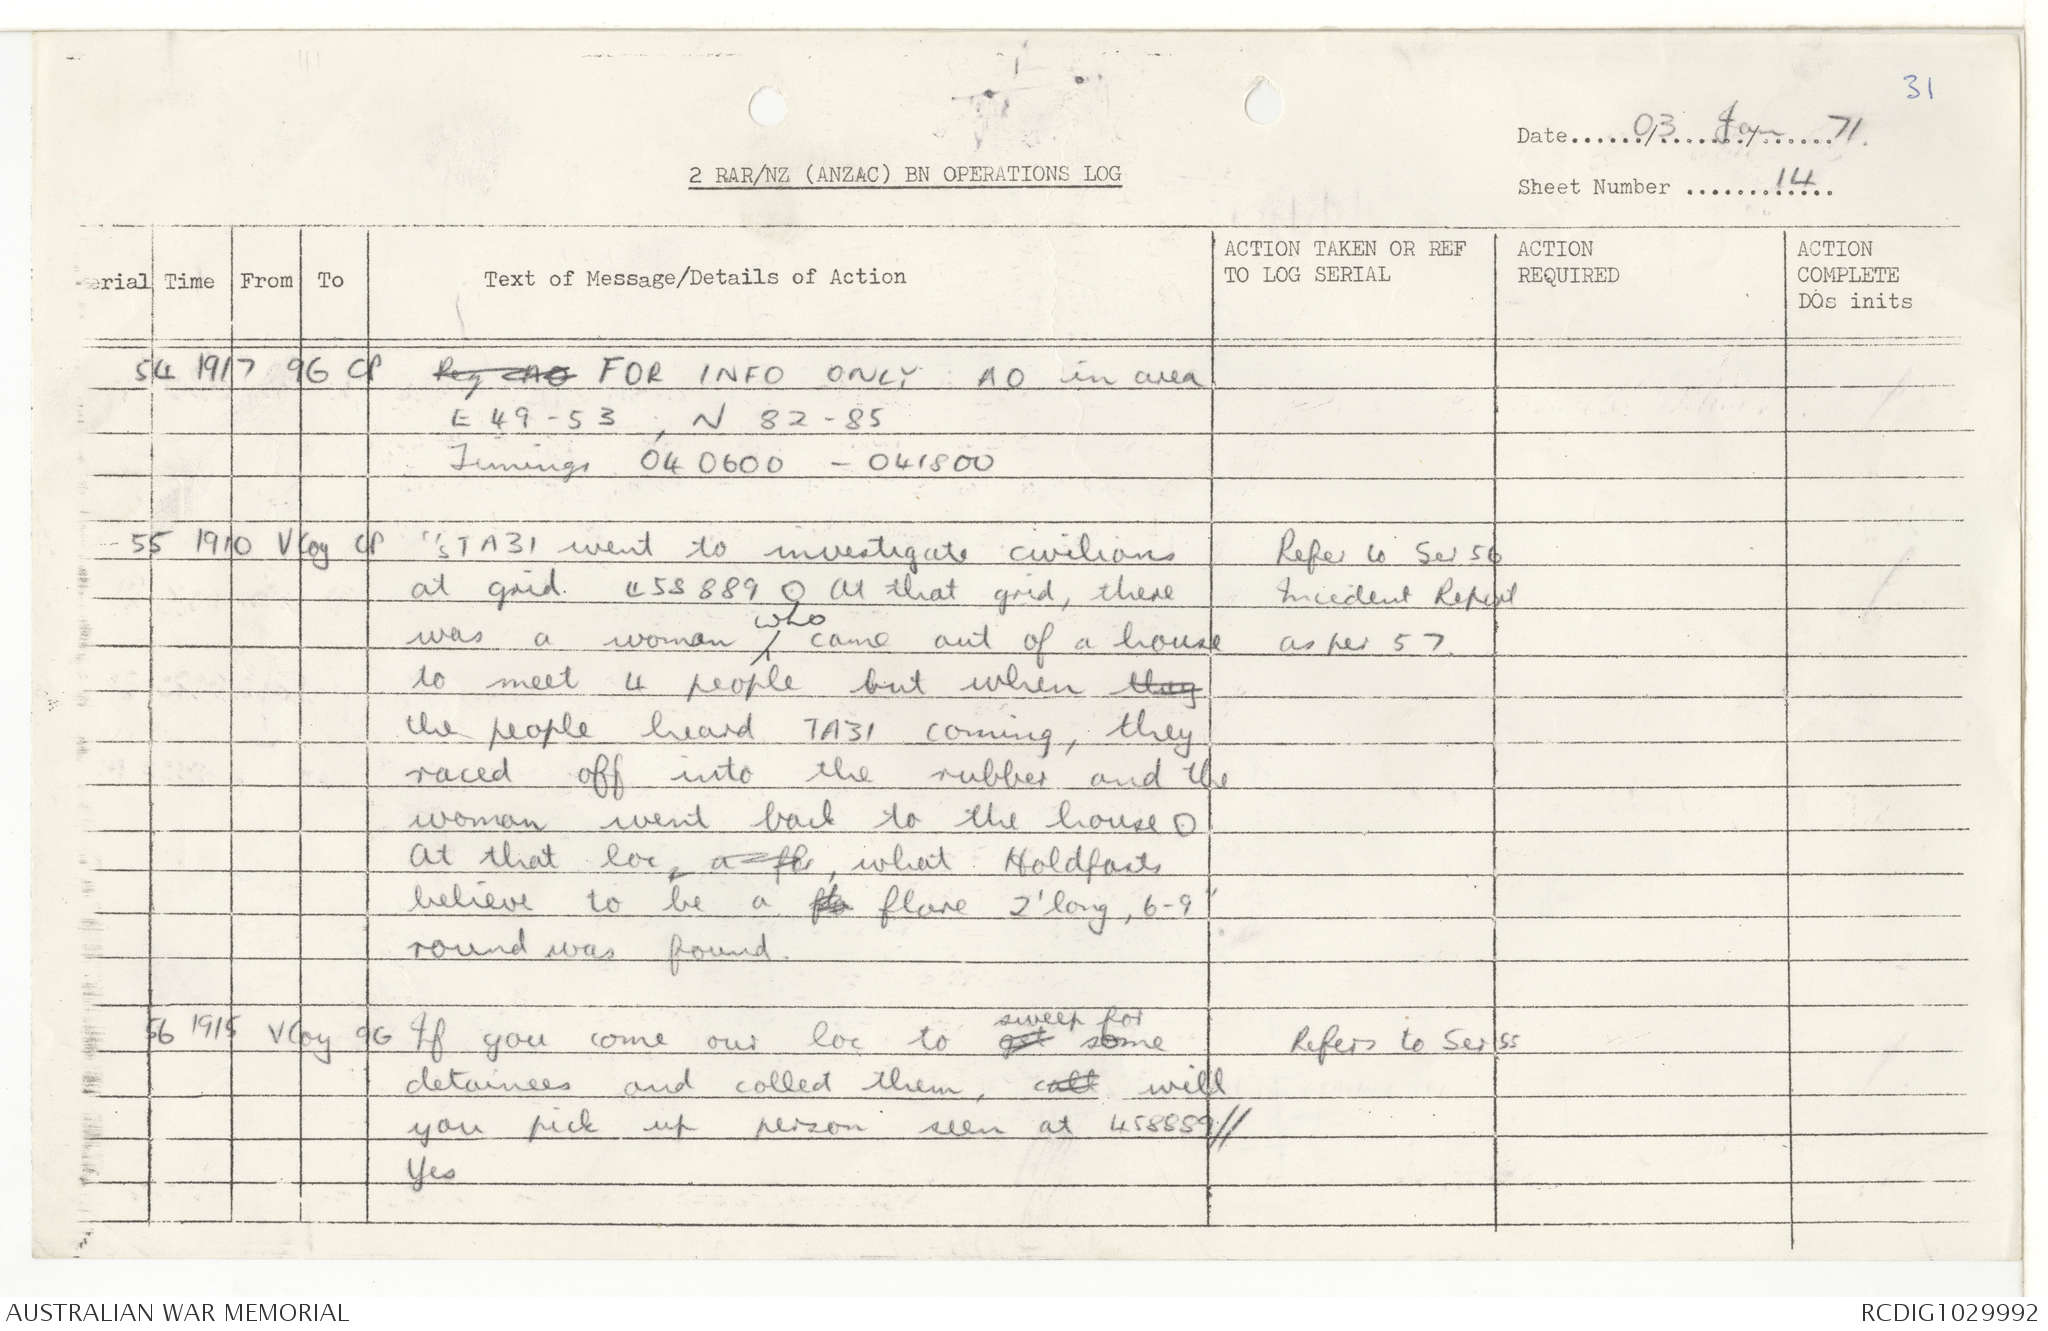 31
Date......03/....Jan../......71.
Sheet Number ......14......
2 RAR/NZ (ANZAC) BN OPERATIONS LOG
erial Time From To Text of Message/Details of Action ACTION TAKEN OR REF TO LOG SERIAL ACTION REQUIRED ACTION COMPLETE DOs inits
54 1917 9G CP FOR INFO ONLY AO in area
E 49-53, N 82-85
Timings 040600 - 041800
55 1910 V Coy CP "/sTA31 went to investigate civilians Refer to Ser 56
at grid 458889 O At that grid, there Incident Report
was a woman who came out of a house as per 57.
to meet 4 people but when they
the people heard TA31 coming, they
raced off into the rubber and the
woman went back to the house O
At that loc, what Holdfasts
believe to be a flare 2' long, 6-9"
round was found.
56 1915 V Coy 9G If you come our loc to sweep for some Refers to Ser 55
detainees and collect them, will
you pick up person seen at 458889//
Yes
AUSTRALIAN WAR MEMORIAL
RCDIG1029992